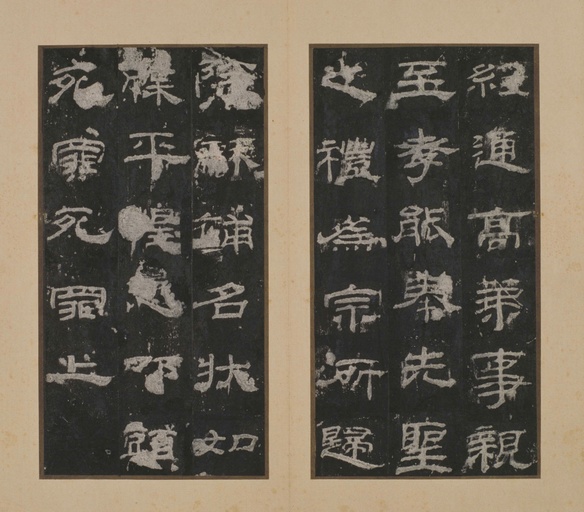 經通高第事親
至孝能奉先聖
之禮為宗所歸
除龢補名狀如
牒平惶恐叩頭
死罪死罪上